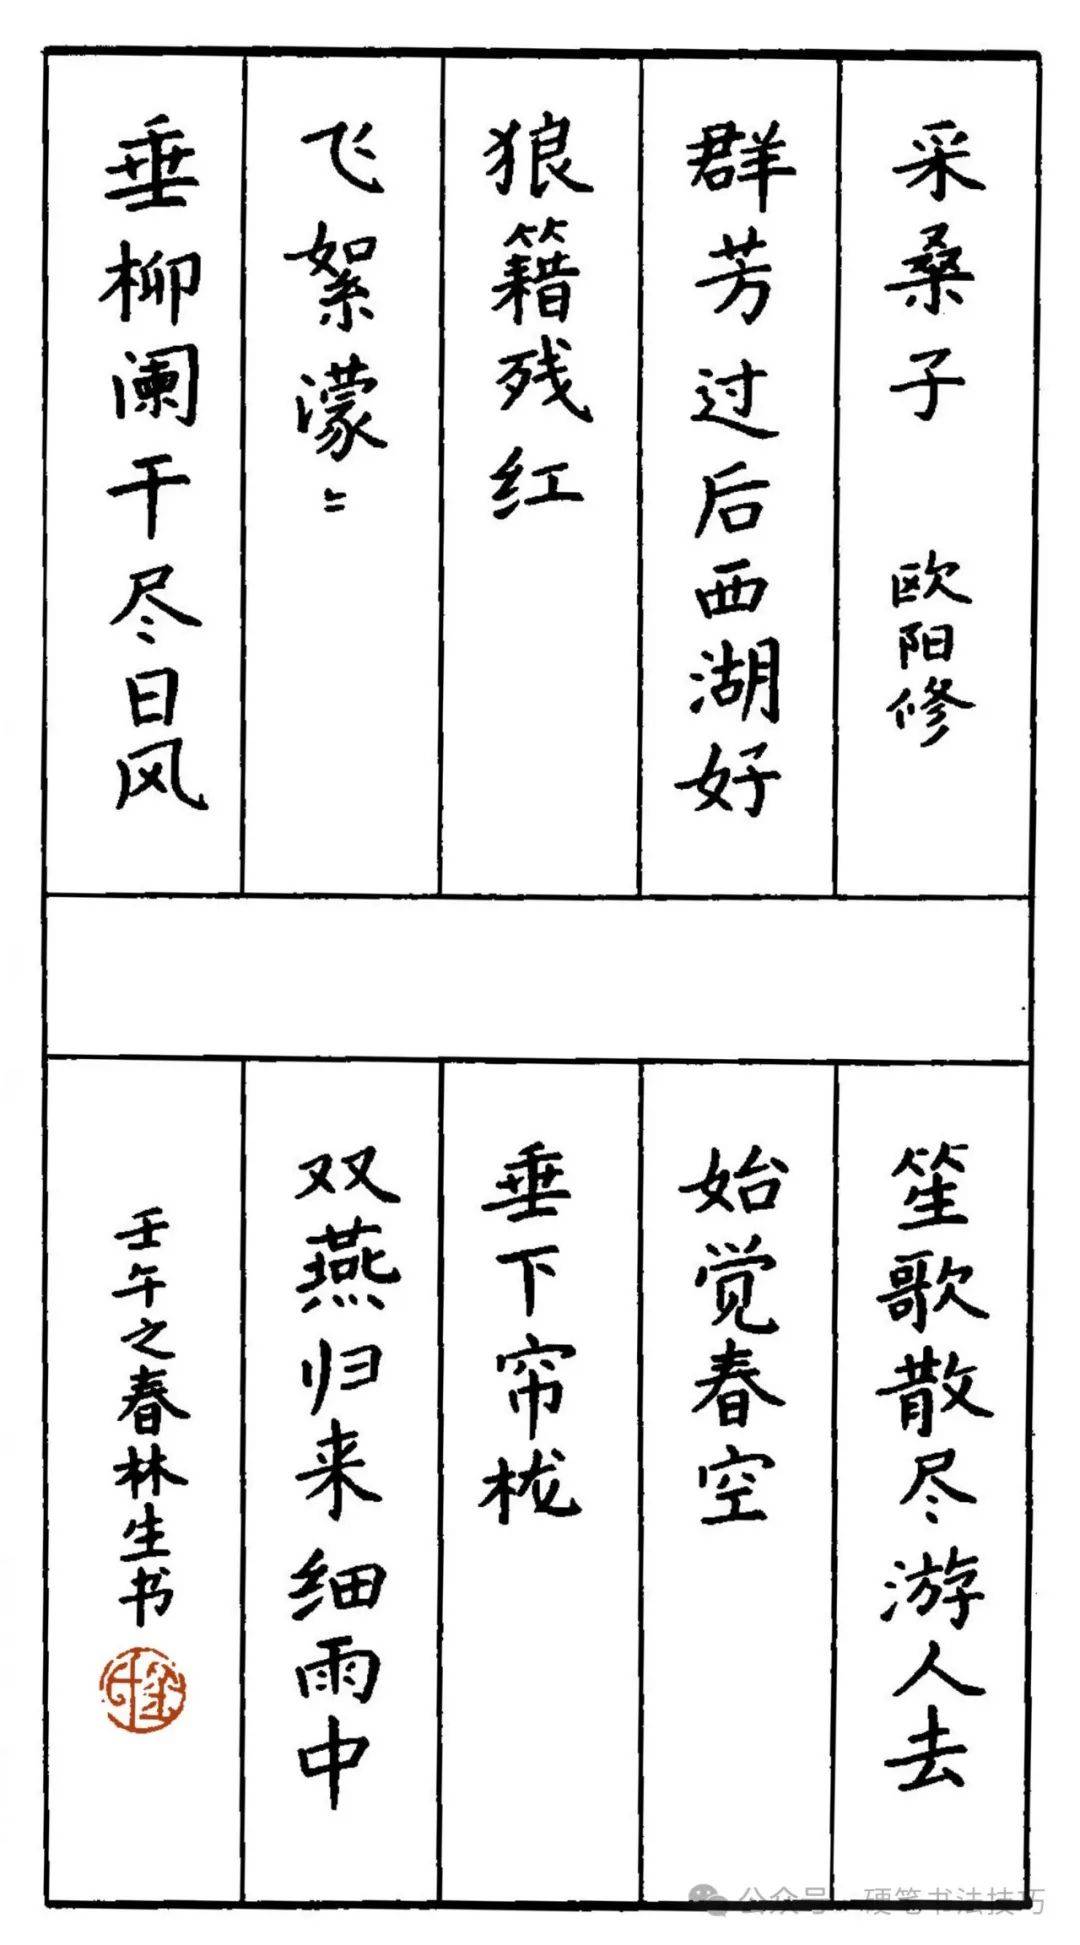 采桑子 欧阳修
群芳过后西湖好
狼籍残红
飞絮濛〻
垂柳阑干尽日风
笙歌散尽游人去
始觉春空
垂下帘栊
双燕归来细雨中
壬午之春林生书
公众号 硬笔书法技巧